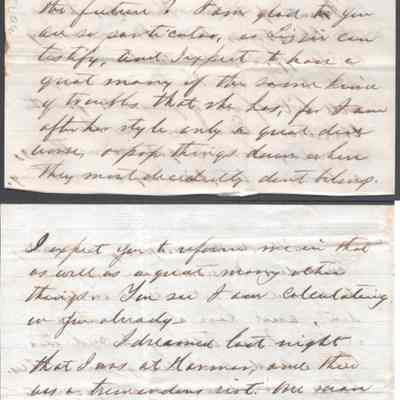 the future I am glad to you
are so particular, as Lizzie can
testify, and I expect to have a
great many of the same kind
of troubles that she has, for I am
after her style only a great deal
worse, or pop things down where
they most decidedly dont belong.
I expect you to reform me in that
as well as a great many other
things. You see I am calculating
on you already.
I dreamed last night
that I was at Harmar, and there
was a tremendous riot. One man